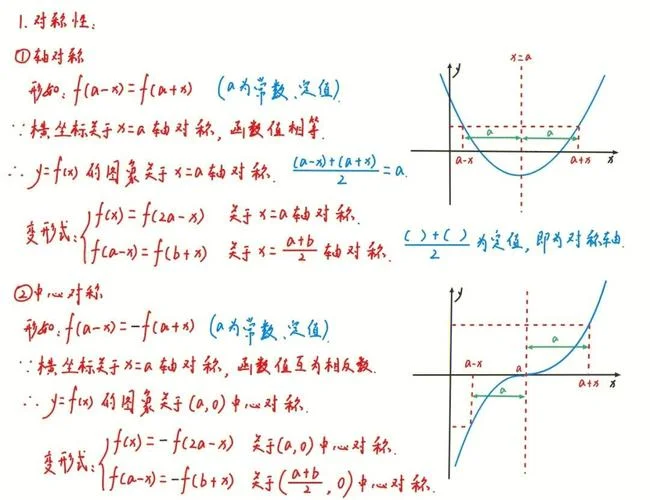 1. 对称性:
①轴对称
形如: f(a-x)=f(a+x) (a为常数、定值)
∵横坐标关于x=a轴对称, 函数值相等.
∴ y=f(x)的图象关于x=a轴对称. ((a-x)+(a+x))/2=a.
变形式: { f(x)=f(2a-x) 关于x=a轴对称.
f(a-x)=f(b+x) 关于x=(a+b)/2轴对称. (( )+( ))/2为定值, 即为对称轴.
x=a
y
a
a
a-x
a+x
x
②中心对称
形如: f(a-x)=-f(a+x) (a为常数、定值)
∵横坐标关于x=a轴对称, 函数值互为相反数.
∴ y=f(x)的图象关于(a,0)中心对称.
变形式: { f(x)=-f(2a-x) 关于(a,0)中心对称.
f(a-x)=-f(b+x) 关于((a+b)/2, 0)中心对称.
y
a
a-x
a
a+x
x
a